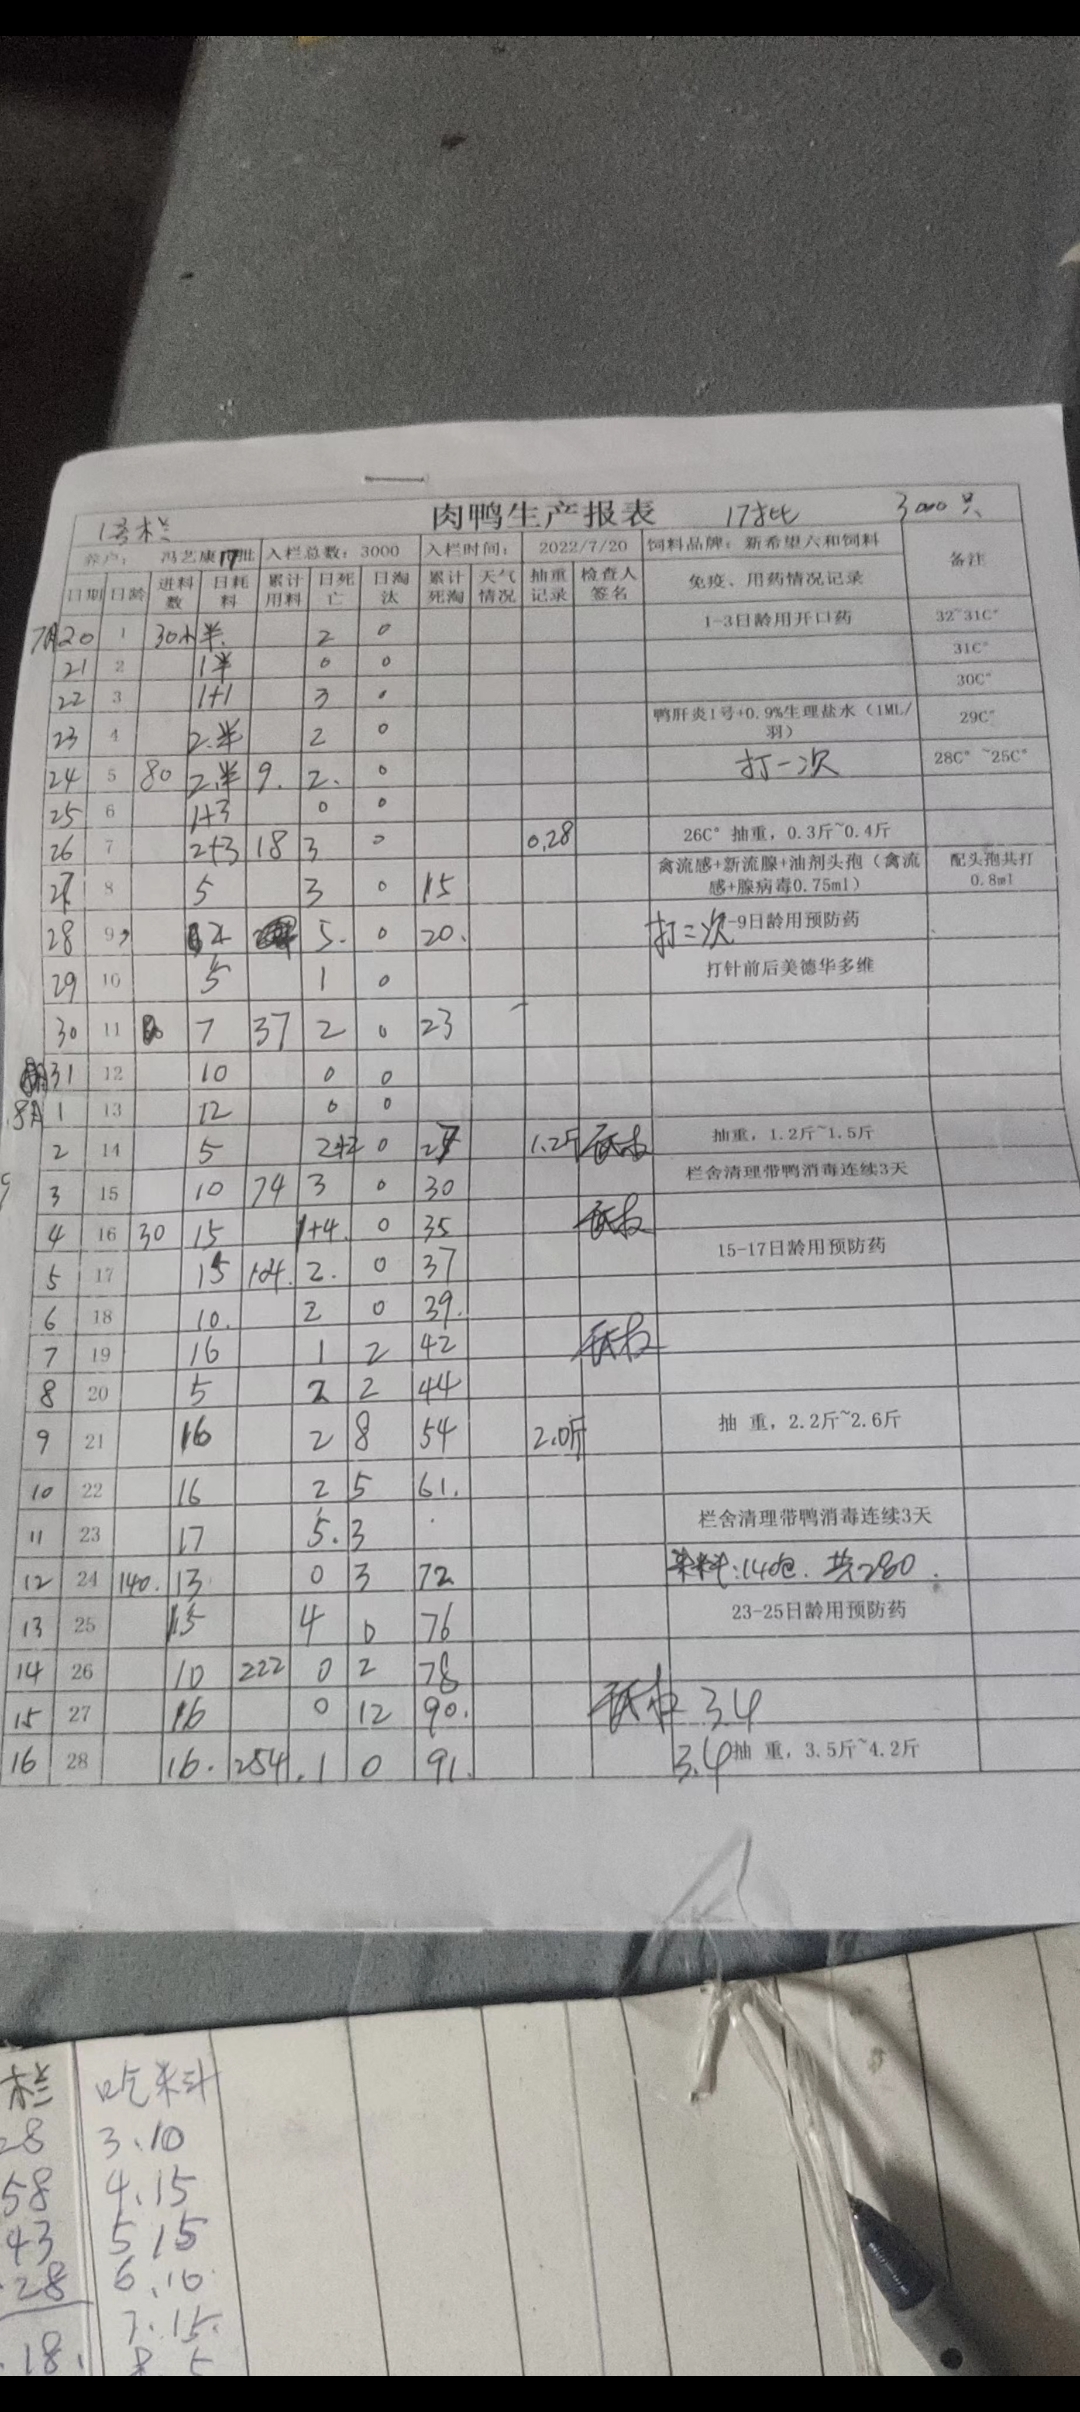 1号栏 肉鸭生产报表 17批 3000只
养户: 冯艺康17批 入栏总数: 3000 入栏时间: 2022/7/20 饲料品牌: 新希望六和饲料 备注
日期 日龄 进料数 日耗料 累计用料 日死亡 日淘汰 累计死淘 天气情况 抽重记录 检查人签名 免疫、用药情况记录
7月20 1 30小 半. 2 0 1-3日龄用开口药 32~31C°
21 2 1半 0 0 31C°
22 3 1+1 3 0 30C°
23 4 2.半 2 0 鸭肝炎1号+0.9%生理盐水（1ML/羽） 29C°
24 5 80 2.半 9. 2. 0 打一次 28C° ~25C°
25 6 1+3 0 0
26 7 2+3 18 3 0 0.28 26C° 抽重, 0.3斤~0.4斤
27 8 5 3 0 15 禽流感+新流腺+油剂头孢（禽流感+腺病毒0.75ml） 配头孢共打0.8ml
28 9 2 5. 0 20. 打二次 -9日龄用预防药
29 10 5 1 0 打针前后美德华多维
30 11 7 37 2 0 23
31 12 10 0 0
8月1 13 12 0 0
2 14 5 2+2 0 27 1.2斤 抽重, 1.2斤~1.5斤
3 15 10 74 3 0 30 栏舍清理带鸭消毒连续3天
4 16 30 15 1+4. 0 35
5 17 15 104. 2. 0 37 15-17日龄用预防药
6 18 10. 2 0 39.
7 19 16 1 2 42
8 20 5 2 2 44
9 21 16 2 8 54 2.0斤 抽 重, 2.2斤~2.6斤
10 22 16 2 5 61.
11 23 17 5. 3 栏舍清理带鸭消毒连续3天
12 24 140. 13 0 3 72 来料:140包. 共280.
13 25 15 4 0 76 23-25日龄用预防药
14 26 10 222 0 2 78
15 27 16 0 12 90. 3.4
16 28 16. 254. 1 0 91. 3.4 抽 重, 3.5斤~4.2斤
栏 吃料
28 3.10
58 4.15
43 5 15
28 6.10
7.15.
18.